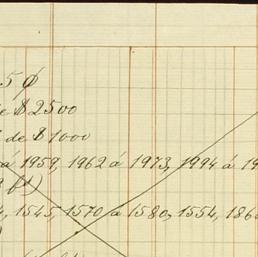 5 ¢
é $ 2500
de $ 1000
a 1959, 1962 á 1973, 1994 á 19
1545, 1570 a 1580, 1554, 186